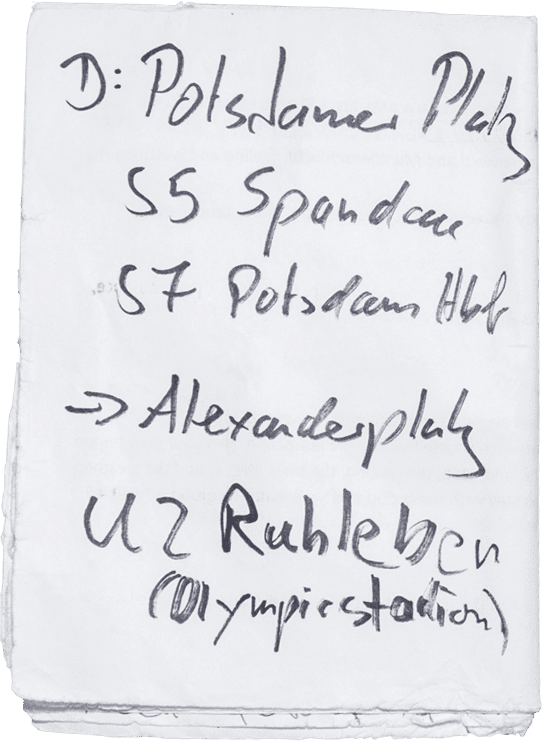 D: Potsdamer Platz
S5 Spandau
S7 Potsdam Hbf
→ Alexanderplatz
U2 Ruhleben
(Olympiastadion)